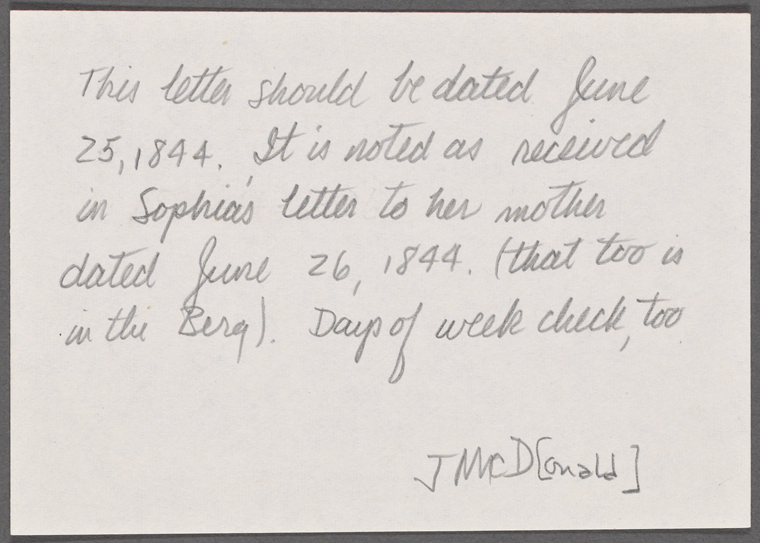 This letter should be dated June
25, 1844. It is noted as received
in Sophia's letter to her mother
dated June 26, 1844. (that too is
in the Berg). Days of week check, too
J McD[onald]